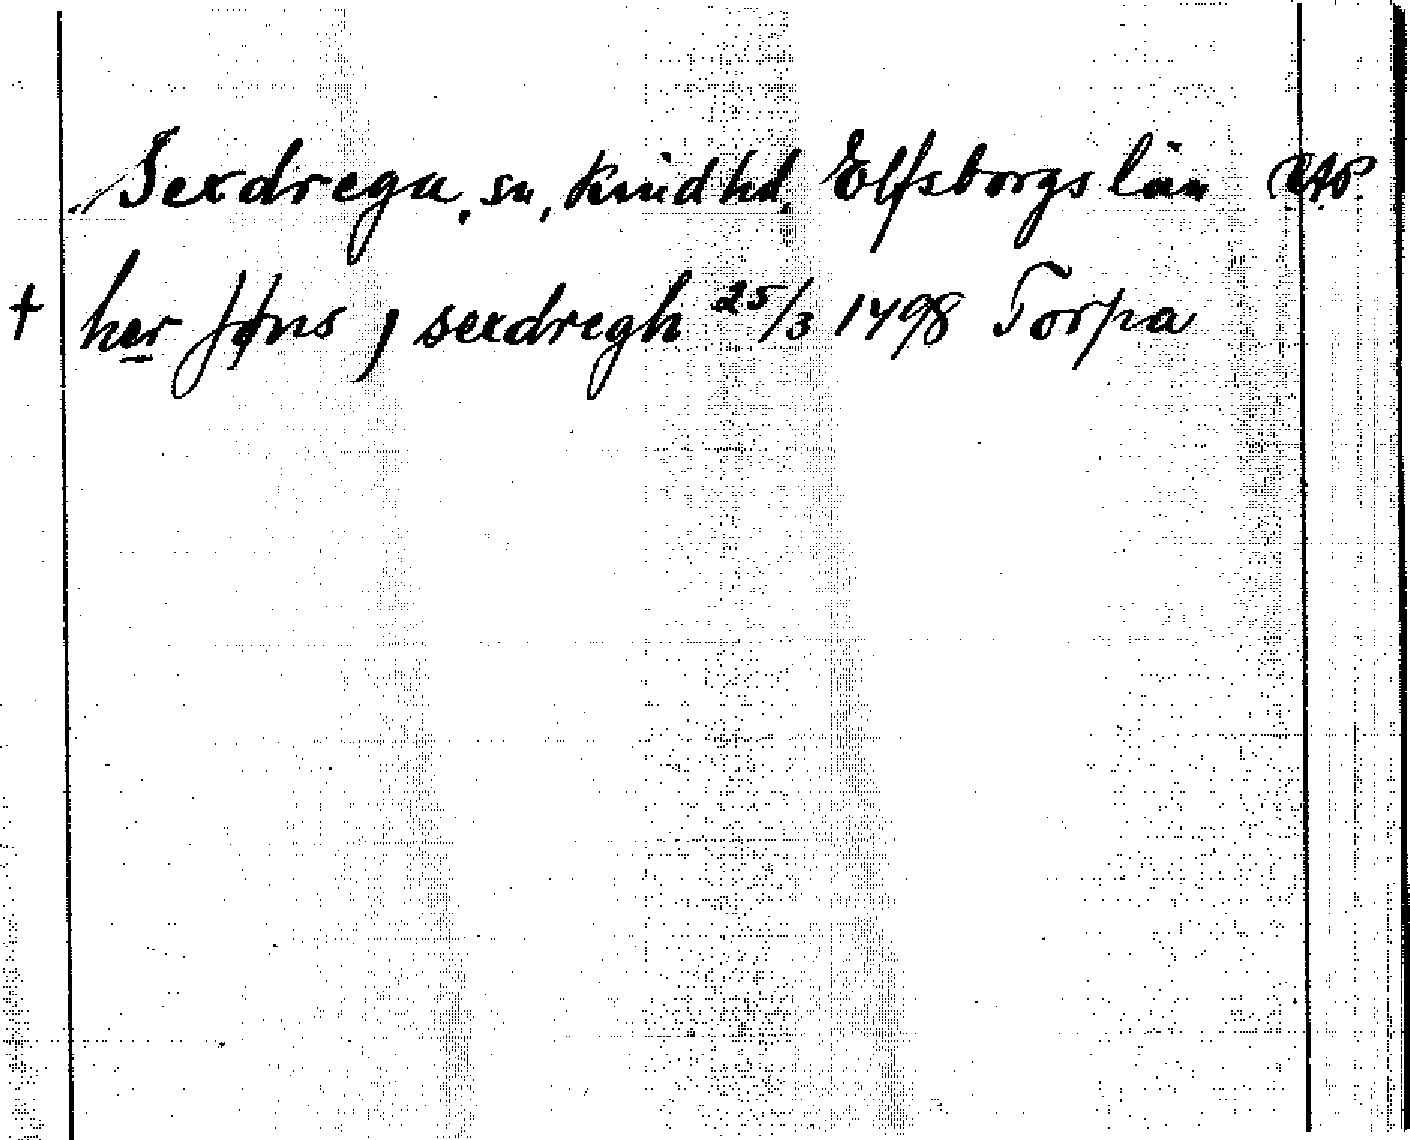 Sexdrega, sn, Kind hd, Elfsborgs län
† her Jøns j sexdregh 25/3 1498 Torpa